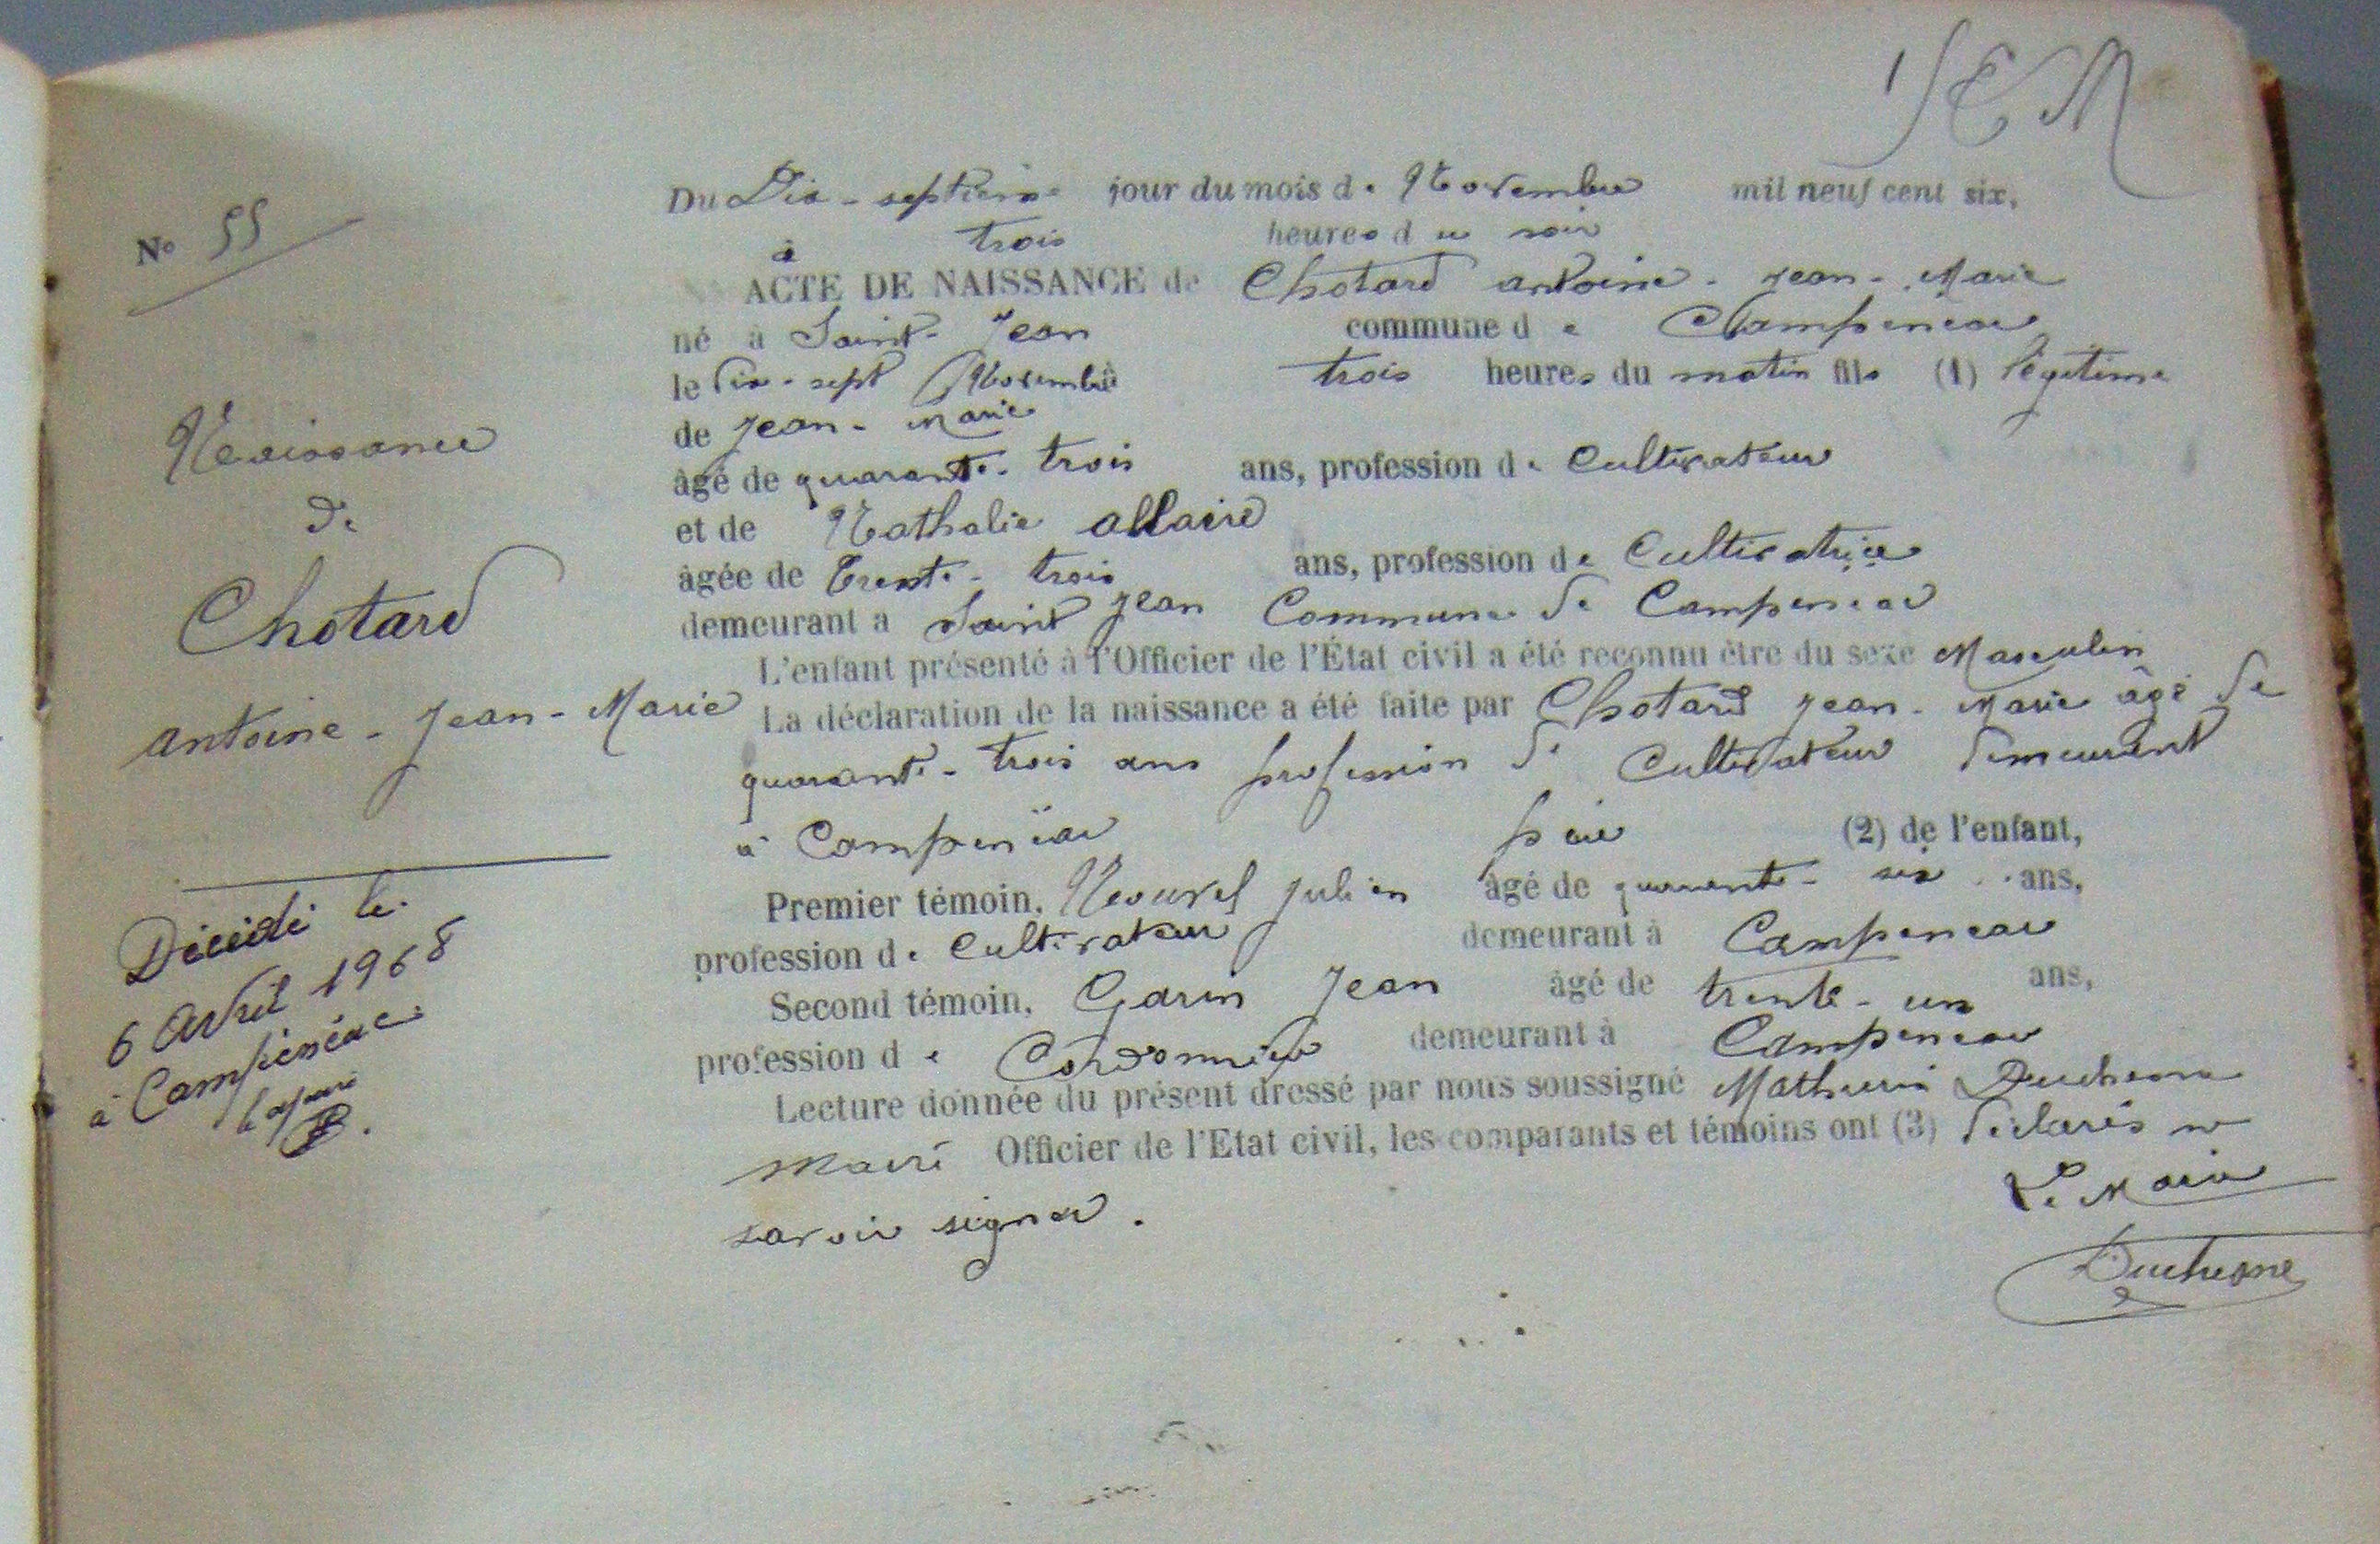 N° 55
Naissance
de
Chotard
antoine - Jean - Marie
Décédé le
6 Avril 1968
à Campénéac
Du Dix - septième jour du mois de Novembre mil neuf cent six,
à trois heures du soir
ACTE DE NAISSANCE de Chotard antoine - Jean - Marie
né à Saint - Jean commune de Campeneac
le dix - sept Novembre à trois heures du matin fils (1) légitime
de Jean - Marie
âgé de quarante - trois ans, profession de Cultivateur
et de Nathalie allaire
âgée de Trente - trois ans, profession de Cultivatrice
demeurant a Saint Jean Commune de Campeneac
L'enfant présenté à l'Officier de l'État civil a été reconnu être du sexe Masculin
La déclaration de la naissance a été faite par Chotard Jean - Marie âgé de
quarante - trois ans profession de Cultivateur demeurant
à Campeneac père (2) de l'enfant,
Premier témoin, Julien âgé de quarante - six ans,
profession de Cultivateur demeurant à Campeneac
Second témoin, Garin Jean âgé de trente - un ans,
profession de Cordonnier demeurant à Campeneac
Lecture donnée du présent dressé par nous soussigné Mathurin Duchesne
Maire Officier de l'Etat civil, les comparants et témoins ont (3) déclarés ne
savoir signer.
Le Maire
Duchesne